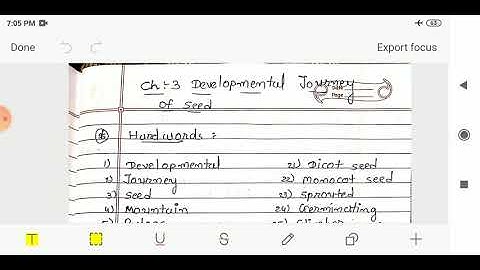 7:05 PM
63
Done
Export focus
Ch:-3 Developmental Journey
Date
Page
of seed
Hardwords :
1) Developmental
21) Dicot seed
2) Journey
22) monocot seed
3) seed
23) sprouted
4) Mountain
24) Germinating
T
U
S